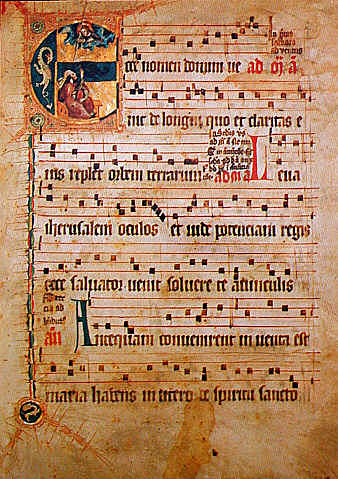 Ecce nomen domini ue
nit de longin quo et claritas e
ius replet orbem terrarum Leua
iherusalem oculos et uide potenciam regis
ecce saluator uenit soluere te a uinculis
an Antequam conuenirent inuenta est
maria habens in utero de spiritu sancto